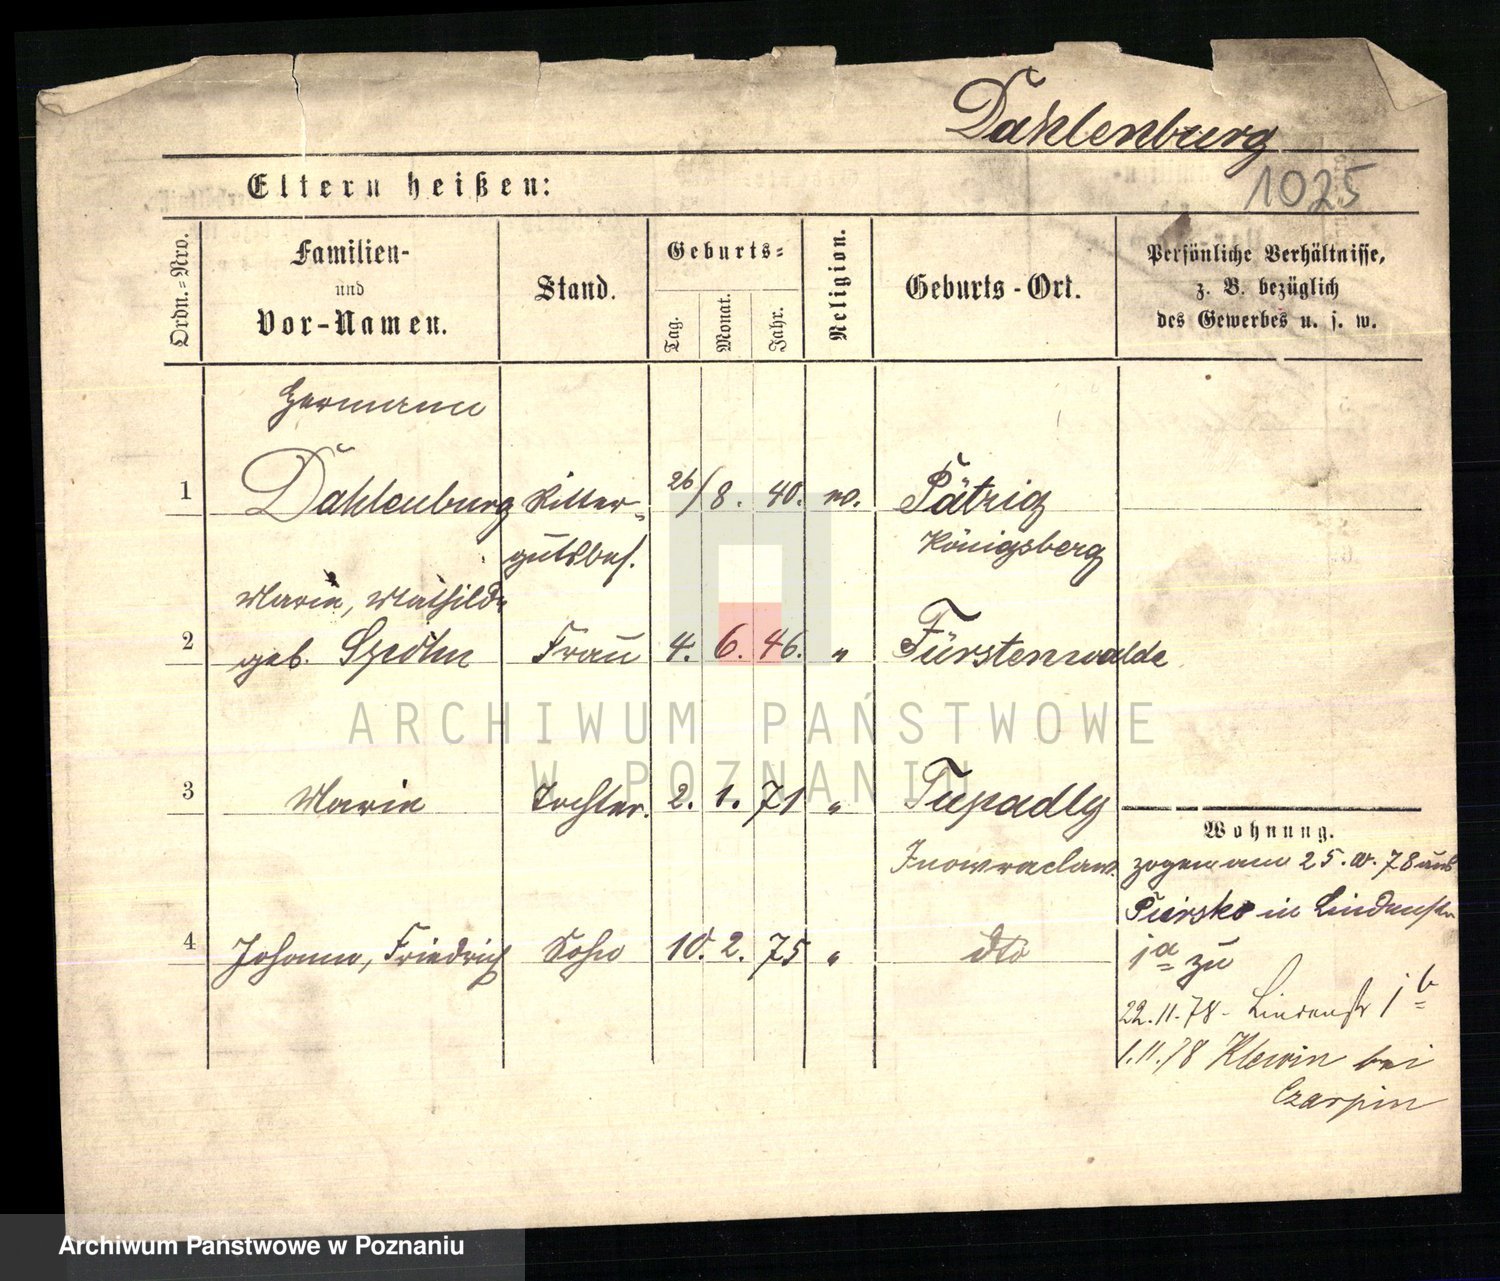 Dahlenburg
Eltern heißen:
1025
Ordn.=Nro.
Familien-
und
Vor-Namen.
Stand.
Geburts=
Tag.
Monat.
Jahr.
Religion.
Geburts-Ort.
Persönliche Verhältnisse,
z. B. bezüglich
des Gewerbes u. s. w.
Hermann
1 Dahlenburg Ritter- 26/ 8. 40. Pätzig
gutsbes. Königsberg
Marie, Mathilde
2 geb. Frau 4. 6. 46. " Fürstenwalde
ARCHIWUM PAŃSTWOWE
W POZNANIU
3 Marie Tochter. 2. 1. 71 " Tupadly
Wohnung.
Inowraclaw. zogen am 25. 78 aus
in Lindenstr
4 Johann, Friedrich Sohn 10. 2. 75 " dto
1a zu
22.11.78 - Lindenstr 1b
1.11.78 Klewin bei
Czarpin
Archiwum Państwowe w Poznaniu